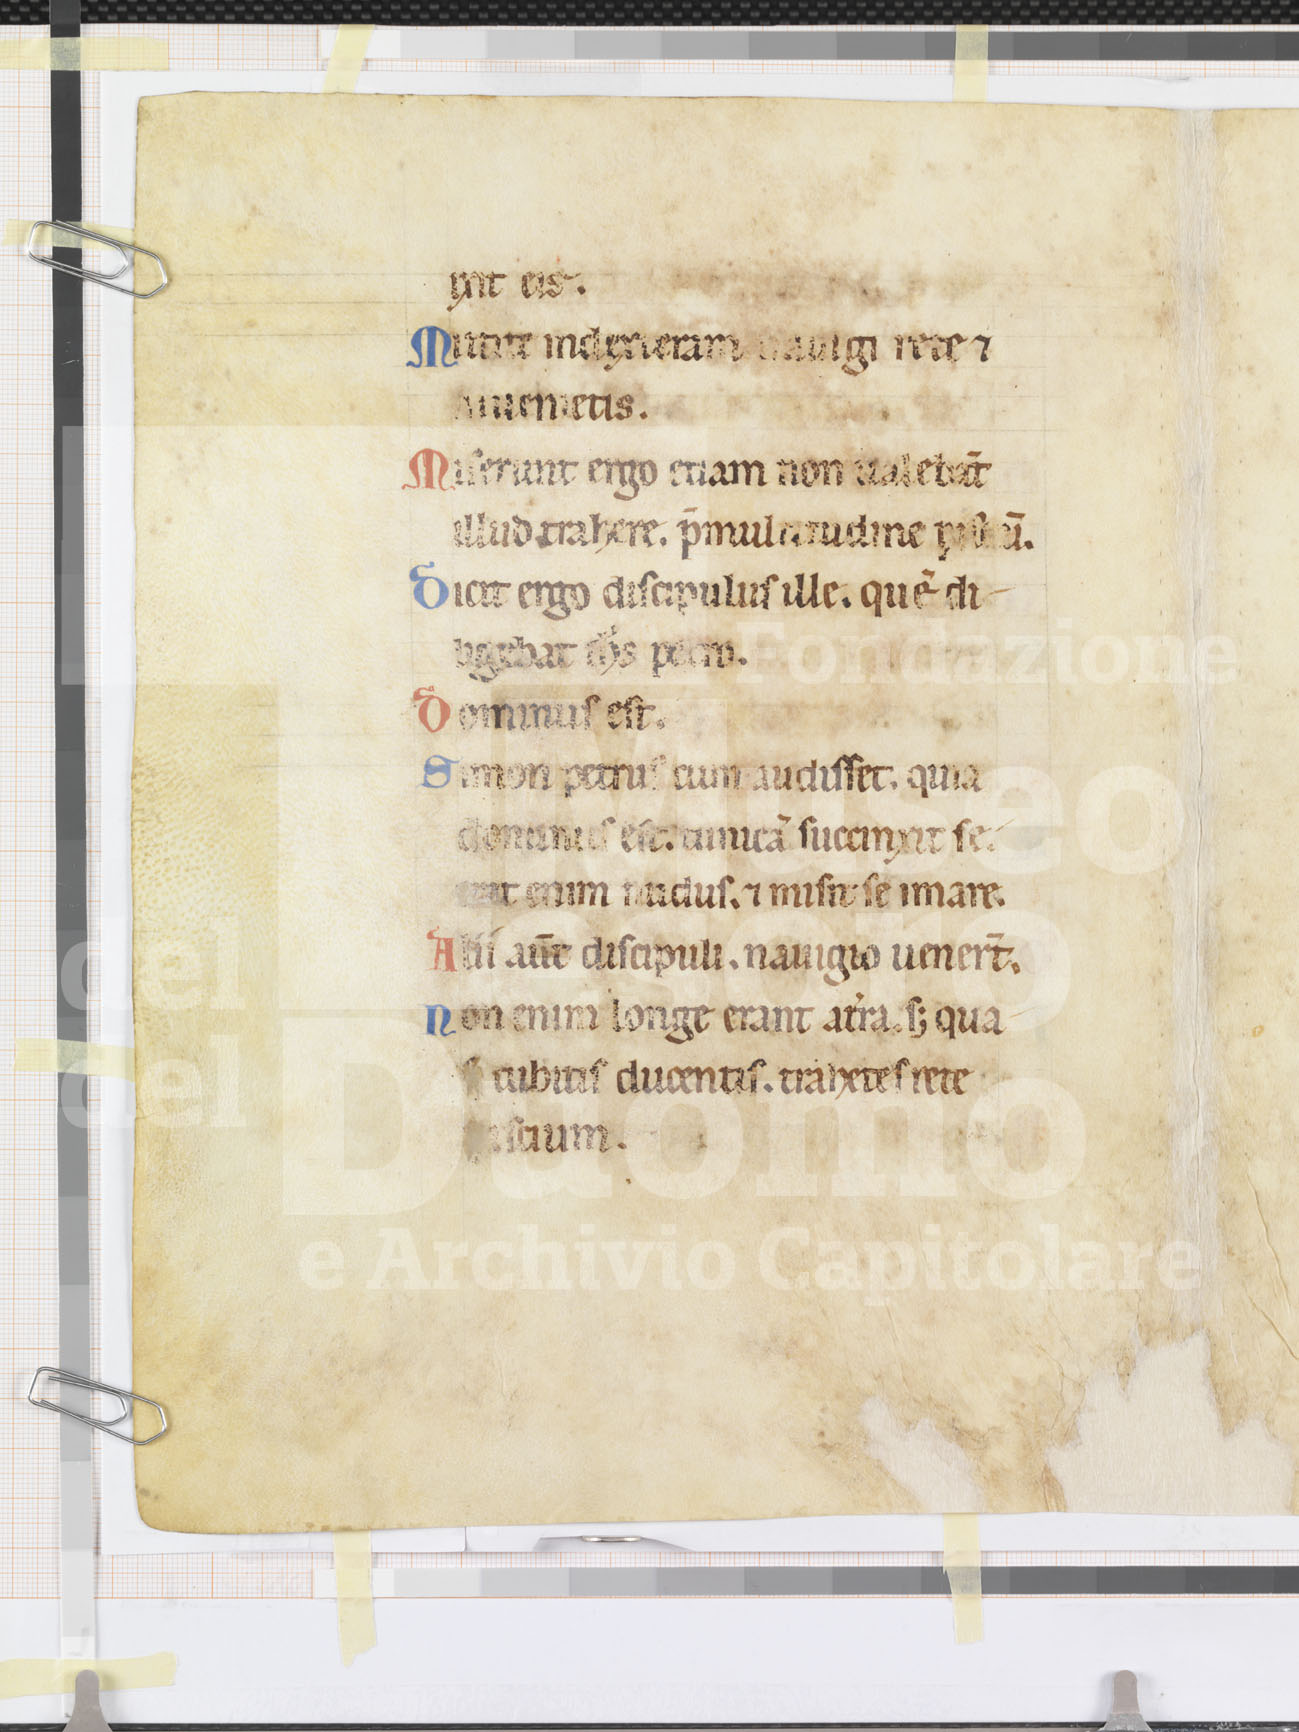 xit eis.
Mittite indexteram nauigi rete ⁊
inuenietis.
Miserunt ergo etiam non ualebāt
illud trahere. p̄multitudine pisciū.
Dicit ergo discipulus ille. quē di
ligebat ih̄s petro.
Dominus est.
Simon petrus cum audisset. quia
dominus est. tunicā succinxit se.
erat enim nudus. ⁊ misit se imare.
Alii aūt discipuli. nauigio uenert̄.
Non enim longe erant at̄ra. sꝫ qua
si cubitis ducentis. trahētes rete
piscium.
Fondazione
Museo
del
del
Duomo
e Archivio Capitolare